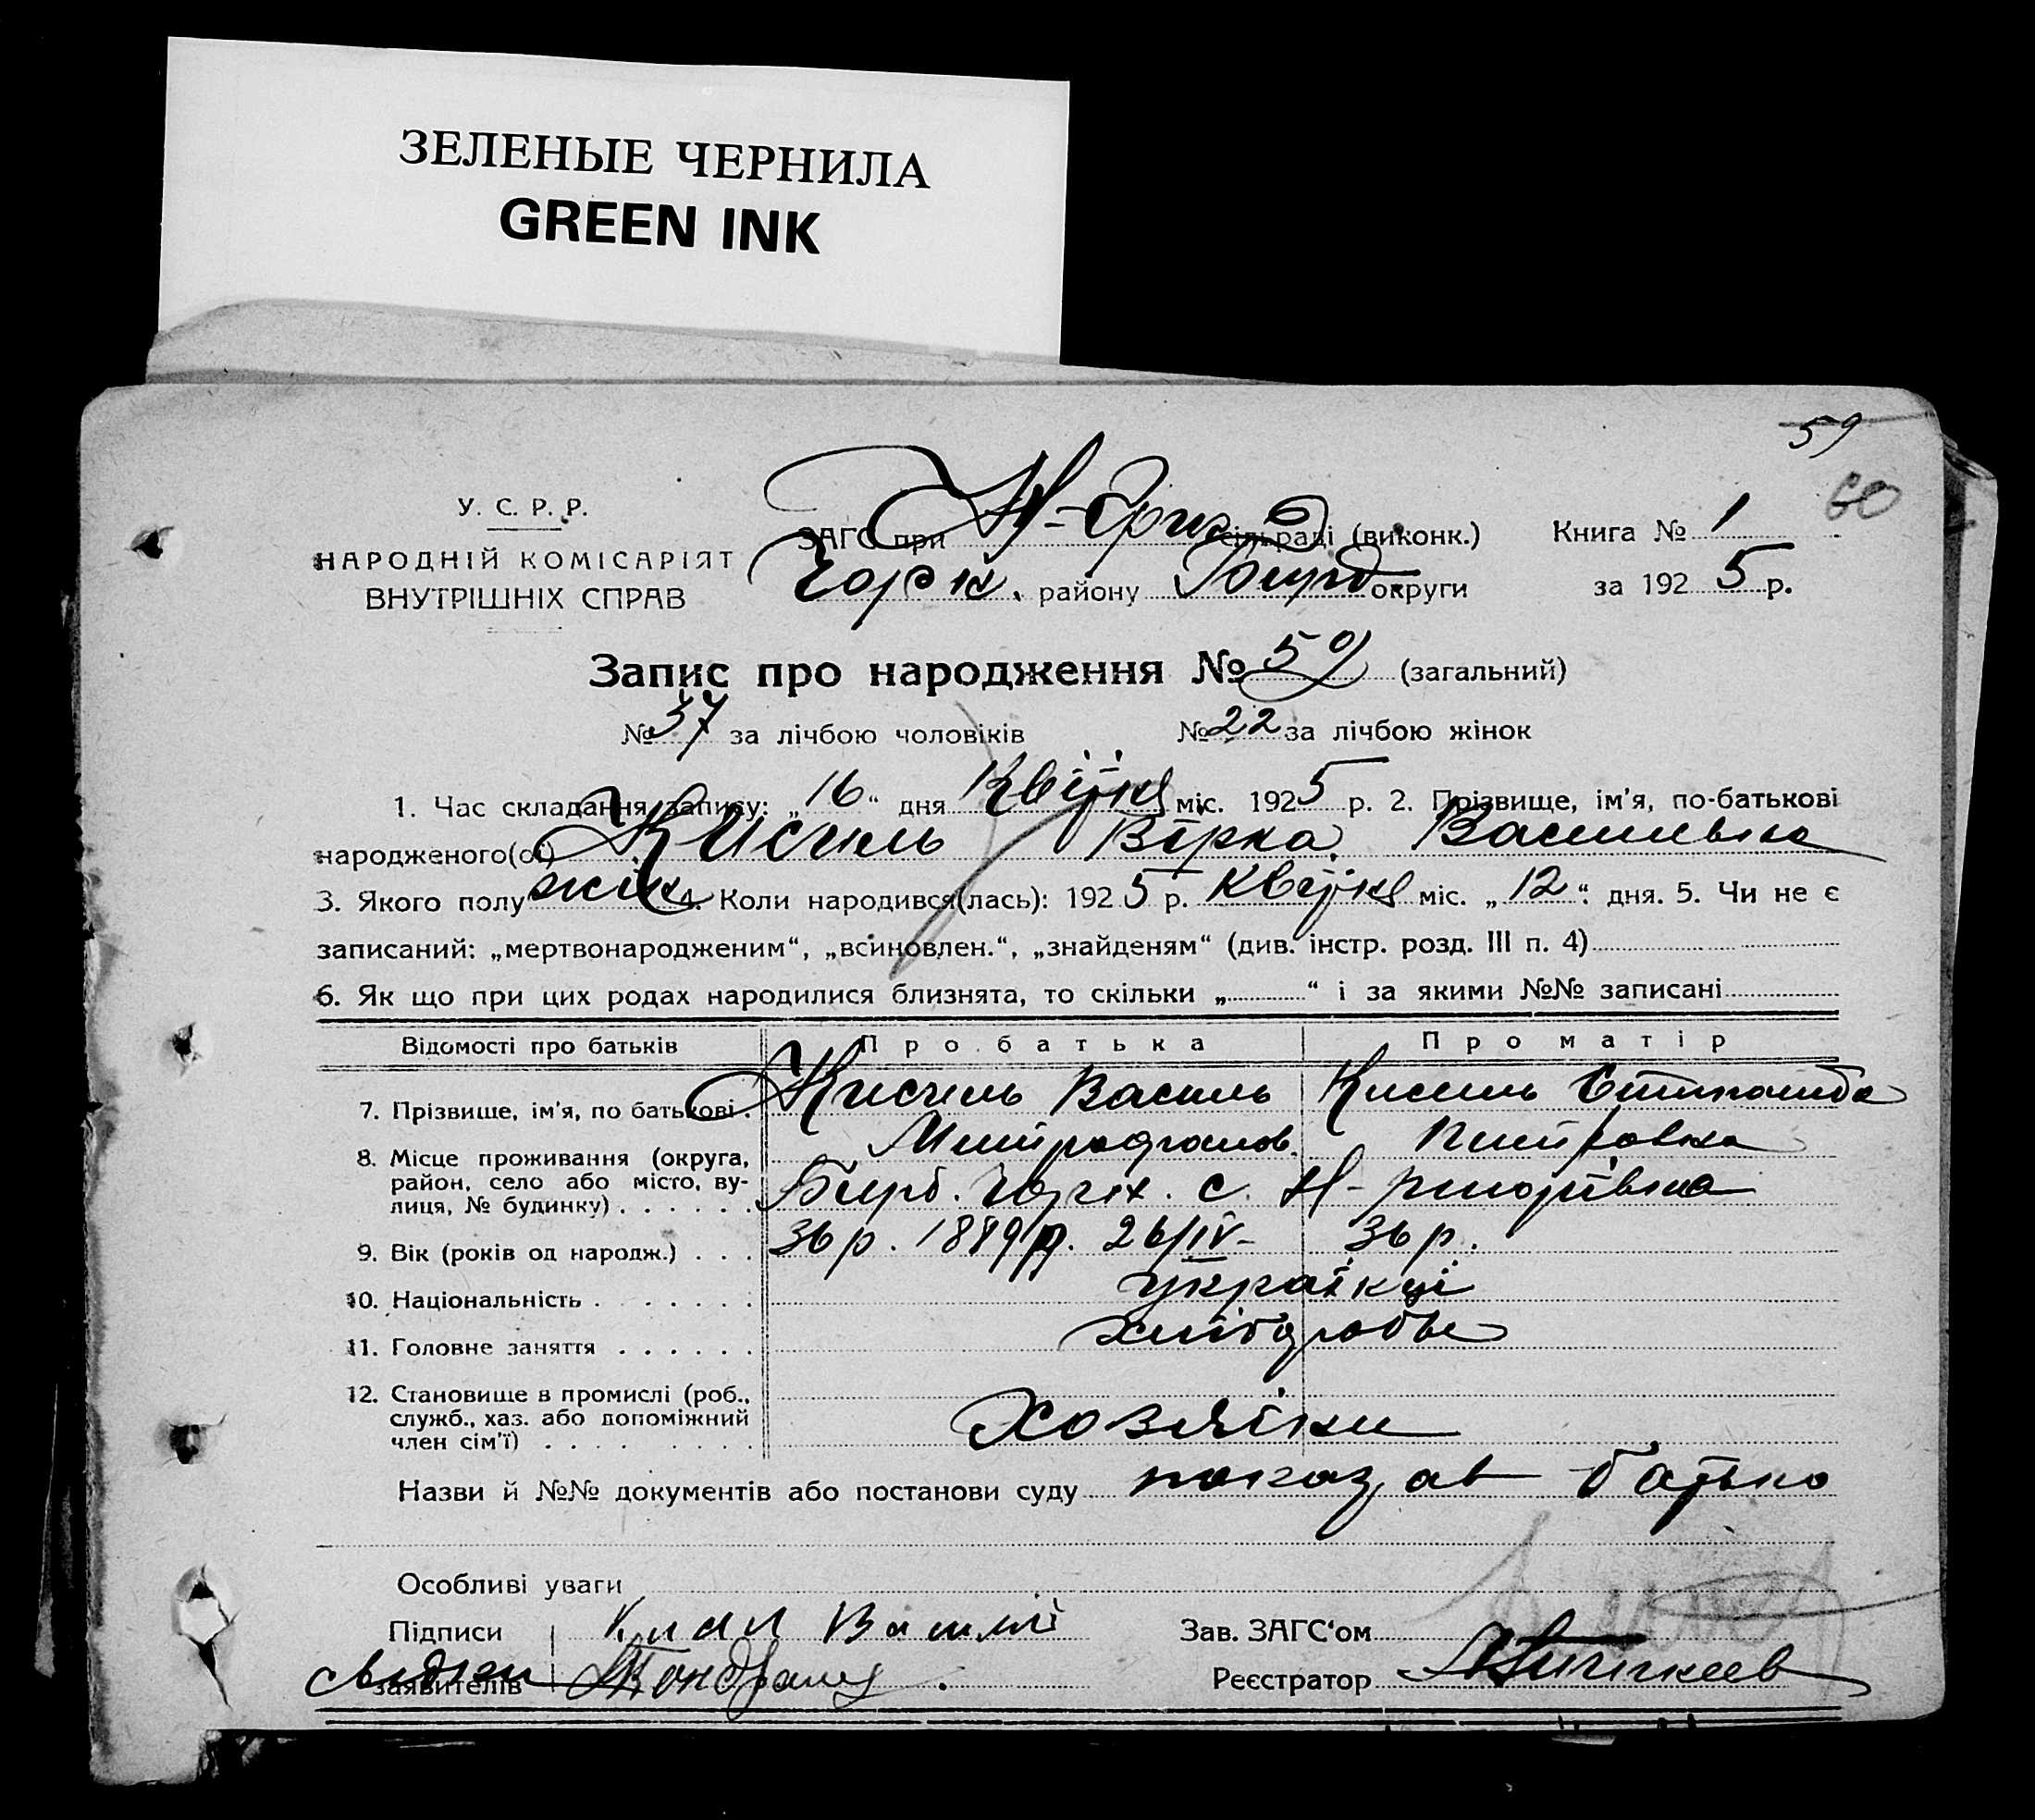 ЗЕЛЕНЫЕ ЧЕРНИЛА
GREEN INK
59
60
У. С. Р. Р.
НАРОДНІЙ КОМІСАРІЯТ
ВНУТРІШНІХ СПРАВ
ЗАГС при Н- сільраді (виконк.)
району округи
Книга № 1
за 1925 р.
Запис про народження № 59 (загальний)
№ 37 за лічбою чоловіків № 22 за лічбою жінок
1. Час складання запису: „16“ дня Квітня міс. 1925 р. 2. Прізвище, ім'я, по-батькові
народженого(ої) Кисіль Вірка Васильвна
3. Якого полу жін. 4. Коли народився(лась): 1925 р. Квітня міс. „12“ дня. 5. Чи не є
записаний: „мертвонародженим“, „всиновлен.“, „знайденям“ (див. інстр. розд. III п. 4)
6. Як що при цих родах народилися близнята, то скільки „ “ і за якими №№ записані
Відомості про батьків Про батька Про матір
7. Прізвище, ім'я, по батькові Кисіль Василь Кисіль
Митрофанов.
8. Місце проживання (округа, район, село або місто, вулиця, № будинку) с. Н-
9. Вік (років од народж.) 36 р. 1889 р. 26/IV- 36 р.
10. Національність українці
11. Головне заняття
12. Становище в промислі (роб., служб., хаз. або допоміжний член сім'ї) Хозяіни
Назви й №№ документів або постанови суду показав батько
Особливі уваги
Підписи
заявителів
Зав. ЗАГС'ом
Реєстратор